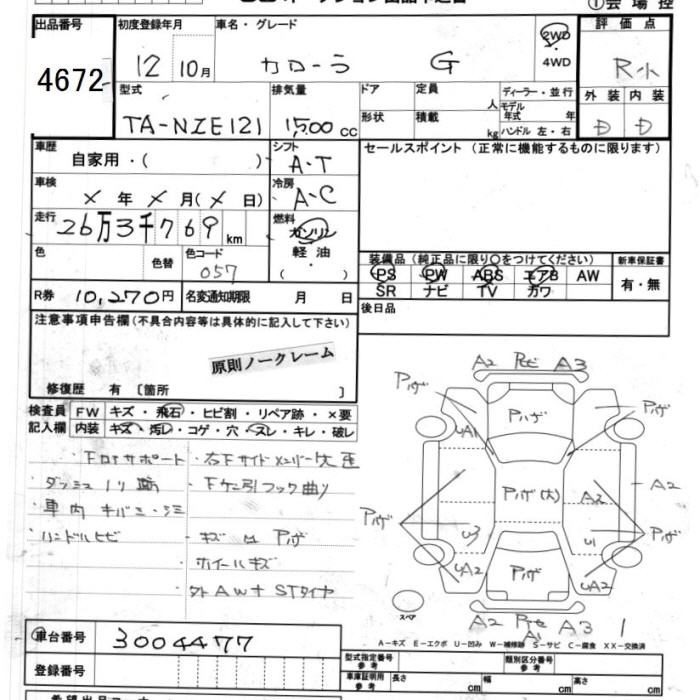 ①会場控
出品番号 初度登録年月 車名・グレード 2WD 4WD 評価点
4672 12 10月 カローラ G R小
外装 内装
D D
型式 排気量 ドア 定員 人 ディーラー・並行
TA-NZE121 1500 CC 形状 積載 kg モデル年式 年 ハンドル 左・右
車歴 自家用・( ) シフト A・T セールスポイント (正常に機能するものに限ります)
車検 × 年 × 月(× 日) 冷房 A-C
走行 26万3千769 km 燃料 ガソリン 軽油 ・( )
色 色替 色コード 057
装備品(純正品に限り○をつけてください) 新車保証書
PS PW ABS エアB AW 有・無
SR ナビ TV カワ
R券 10,270円 名変通知期限 月 日 後日品
注意事項申告欄(不具合内容等は具体的に記入して下さい)
原則ノークレーム
修復歴 有 〔箇所 〕
検査員 FW キズ・飛石・ヒビ割・リペア跡・×要
記入欄 内装 キズ・汚レ・コゲ・穴・スレ・キレ・破レ
車内 キバミ・シミ
ハンドルヒビ
・キズ Pハゲ
ホイールキズ
・外AW+STタイヤ
A2 A3
Pハゲ Pハゲ Pハゲ
UA1
Pハゲ(大) A2 A2
Pハゲ U3 U1 Pハゲ
UA2 Pハゲ UA2
スペア
A2 A3
A1
A-キズ E-エクボ U-凹み W-補修跡 S-サビ C-腐食 XX-交換済
車台番号 3004477
登録番号
型式指定番号 参考 類別区分番号 参考
車庫証明用 参考 長さ cm 幅 cm 高さ cm